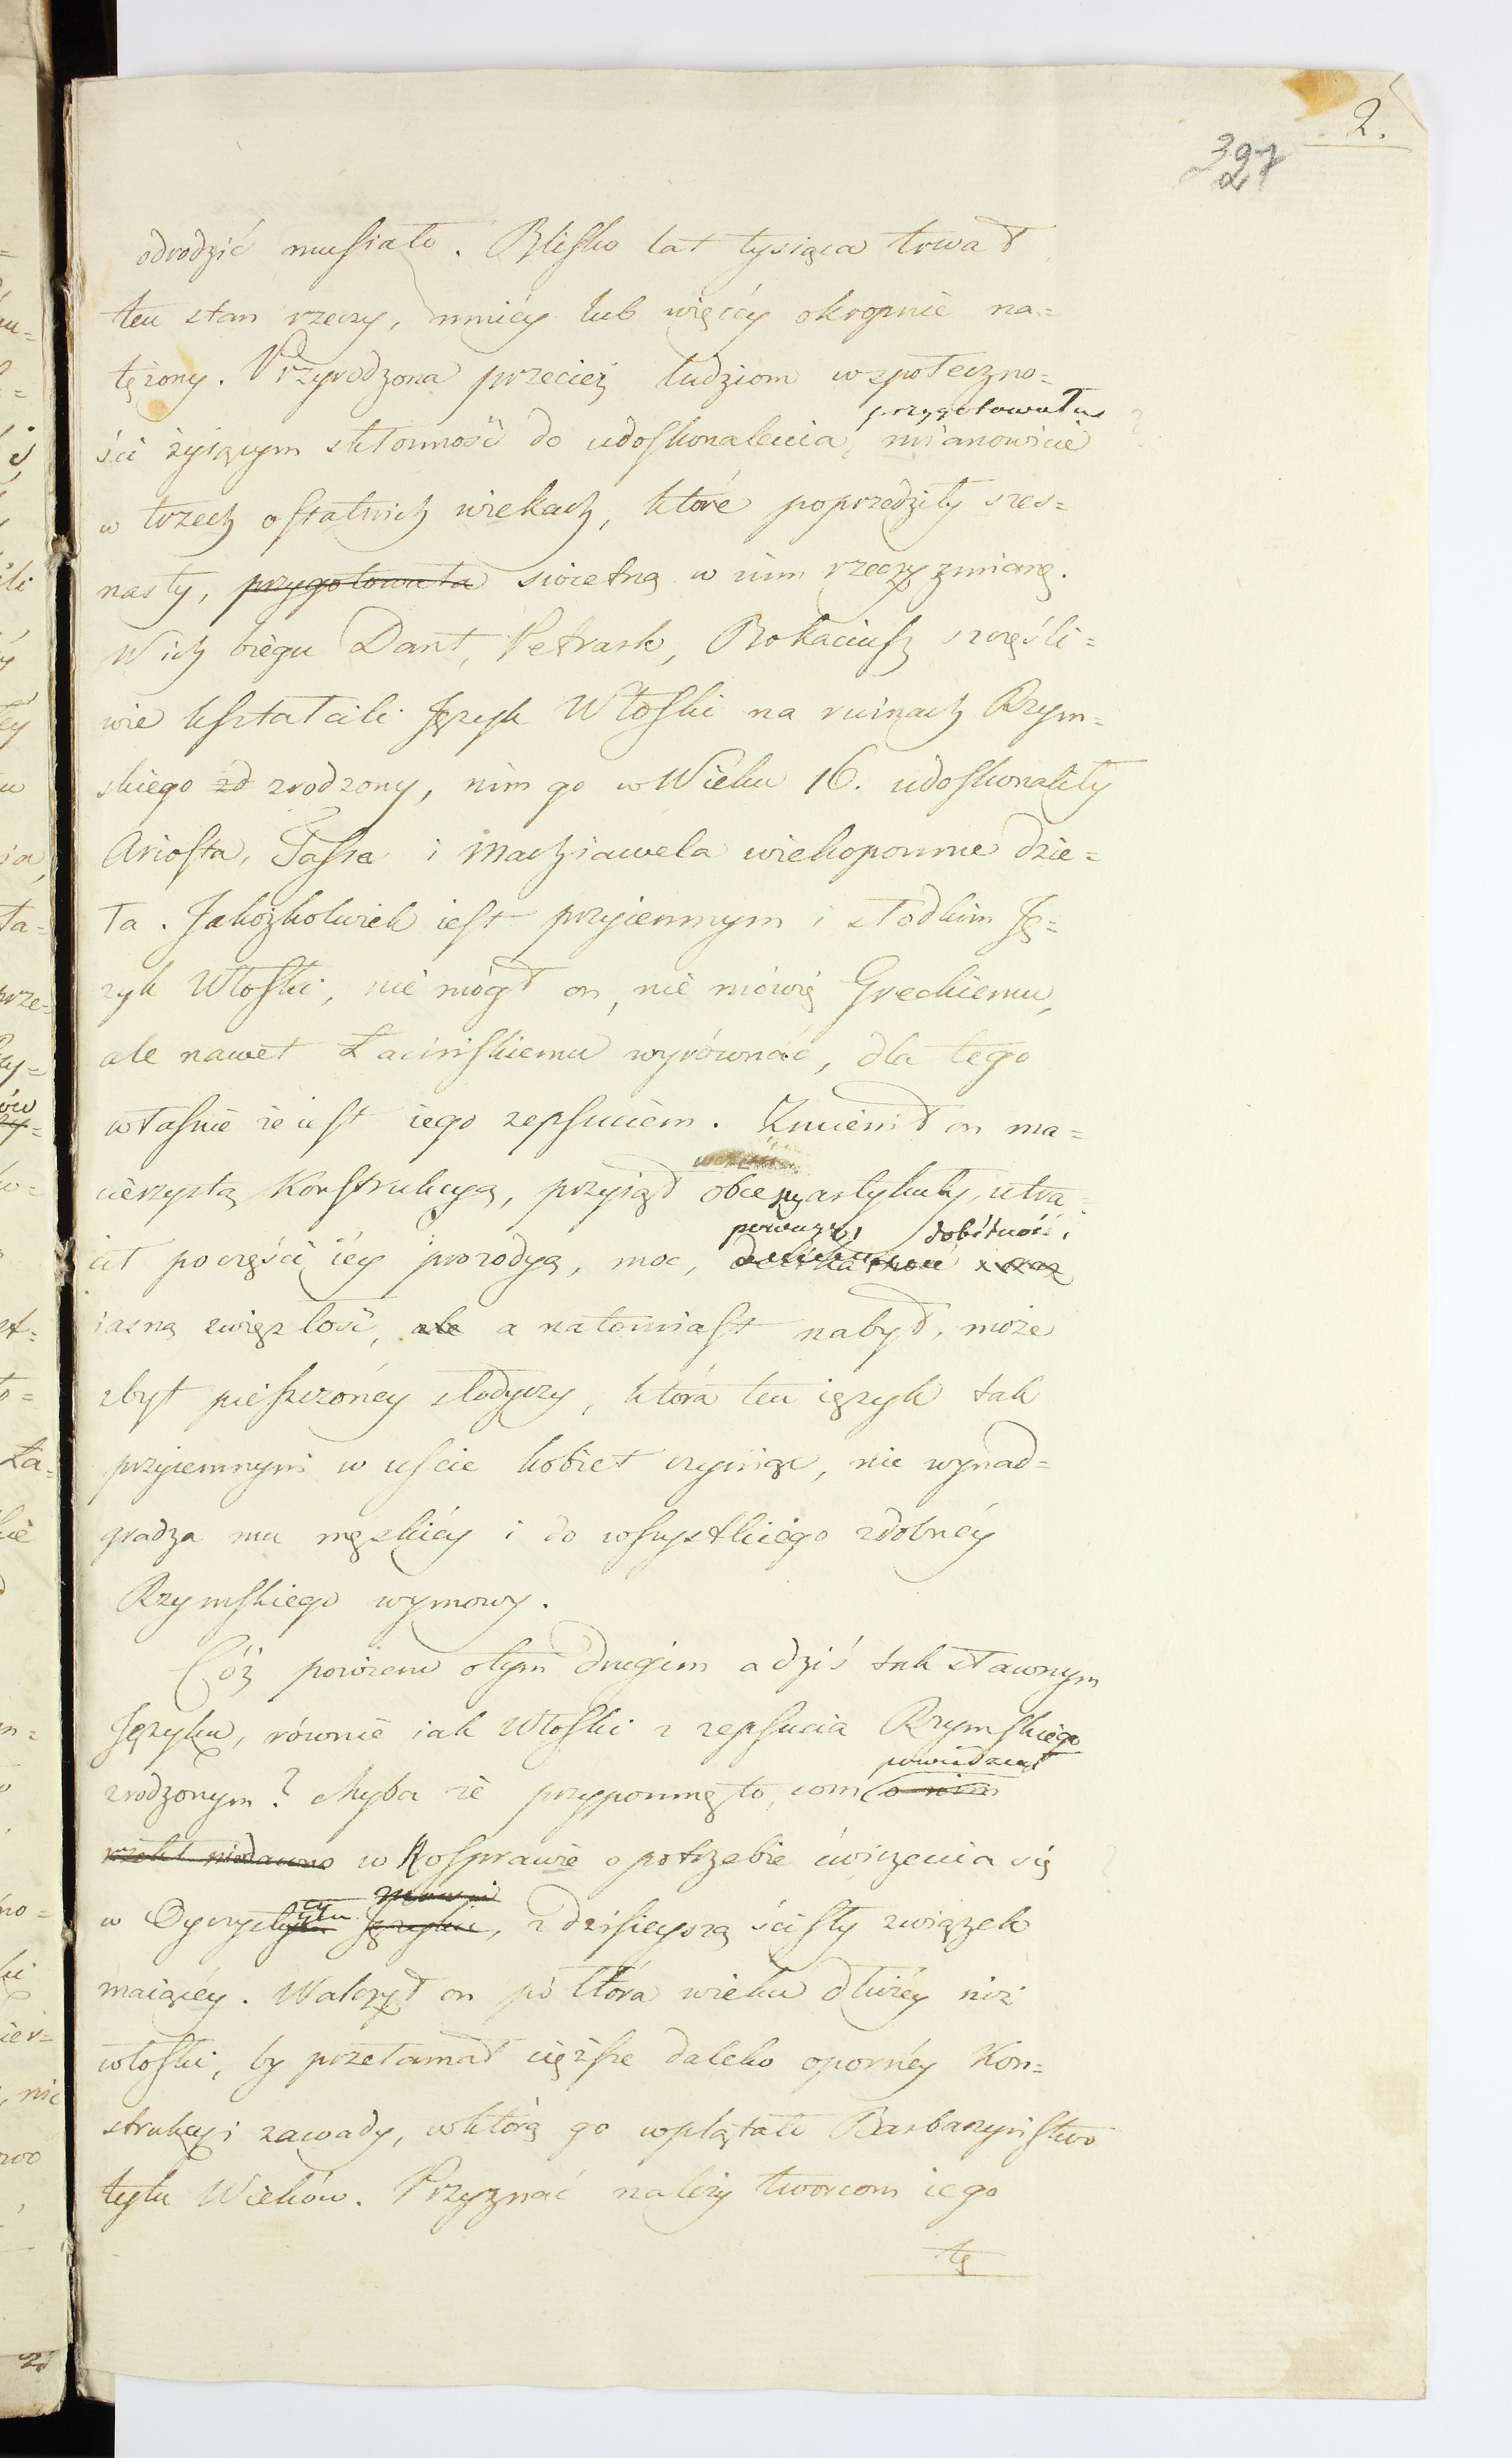 2.
397
27
odrodzić musiało. Blisko lat tysiąca trwał
ten stan rzeczy, mniéy lub więcéy okropnie na=
tężony. Przyrodzona przecież ludziom w społeczno=
przygotowała
ści żyiącym skłonność do udoskonalenia, mianowicie
w trzech ostatnich wiekach, które poprzedziły szes=
nasty, przygotowała świetną w nim rzeczy zmianę.
W ich biegu Dant, Petrark, Bokaciusz szczęśli=
wie kształcili Język Włoski na ruinach Rzym=
skiego zd zrodzony, nim go w Wieku 16. udoskonaliły
Ariosta, Tassa i Machiawela wiekopomne dzie=
ła. Jakożkolwiek iest przyiemnym i słodkim Ję=
zyk Włoski, nie mógł on, nie mówię Greckiemu,
ale nawet Łacińskiemu wyrównać, dla tego
własnie że iest iego zepsuciem. Zmienił on ma=
cierzystą Konstrukcyą, przyiął obce artykuły, utra=
powagę, dobitność i
cił po części iéy prozodyą, moc, delikatność i oraz
iasną zwięzłość, ale a natomiast nabył, może
zbyt pieszczonéy słodyczy, która ten ięzyk tak
przyiemnym w uście kobiet czyniąc, nie wynad=
gradza mu męskiéy i do wszystkiego zdobnéy
Rzymskiego wymowy.
Cóż powiem o tym drugim a dziś tak sławnym
Języku, równie iak Włoski z zepsucia Rzymskiego
powiedział
zrodzonym? chyba że przypomnę to, com o nim
rzekł niedawno w Rosprawie o potrzebie ćwiczenia się
mowie
w Oyczystym Języku, z dzisieyszą ścisły związek
maiącéy. Walczył on półtora wieku dłużéy niż
włoski, by przełamał cięższe daleko opornéy Kon=
strukcyi zawady, w którą go wplątało Barbarzyństwo
tylu Wieków. Przyznać należy tworcom iego
tę